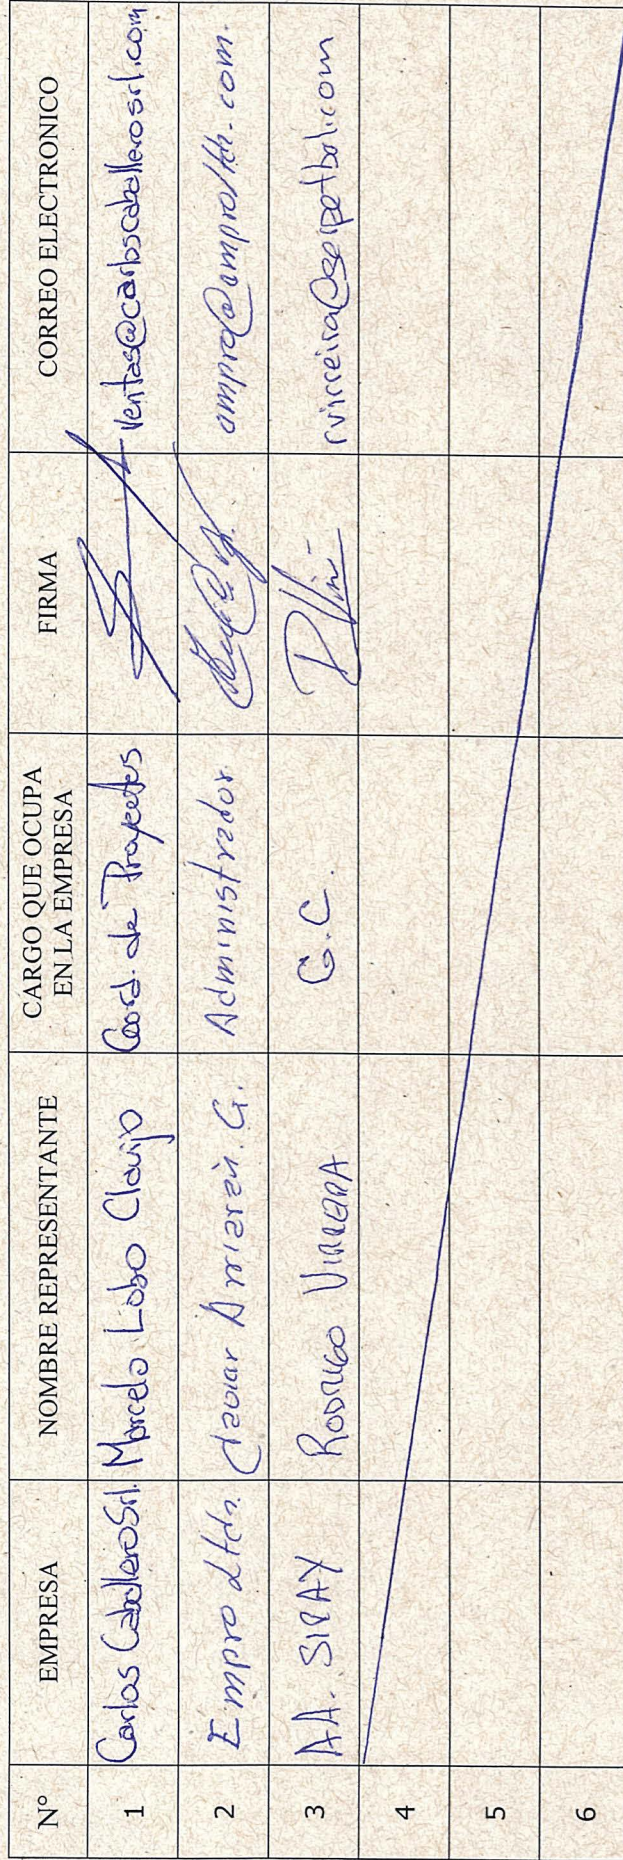 N° EMPRESA NOMBRE REPRESENTANTE CARGO QUE OCUPA EN LA EMPRESA FIRMA CORREO ELECTRONICO
1 Carlos Caballero Srl. Marcelo Lobo Clavijo Coord. de Proyectos ventas@carloscaballerosrl.com
2 Empro Ltda. Javier Arrieran G. Administrador
3 AA. SIRAY RODRIGO VIRREIRA G.C.
4
5
6